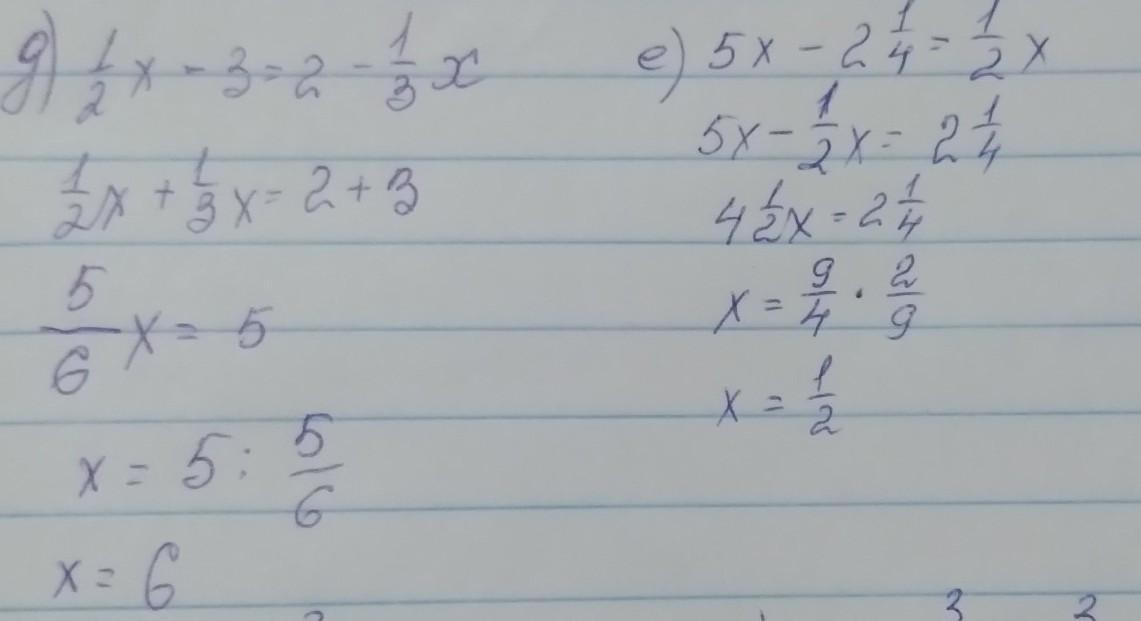 д) 1/2 x - 3 = 2 - 1/3 x
1/2 x + 1/3 x = 2 + 3
5/6 x = 5
x = 5 : 5/6
x = 6
е) 5x - 2 1/4 = 1/2 x
5x - 1/2 x = 2 1/4
4 1/2 x = 2 1/4
x = 9/4 · 2/9
x = 1/2
3 2